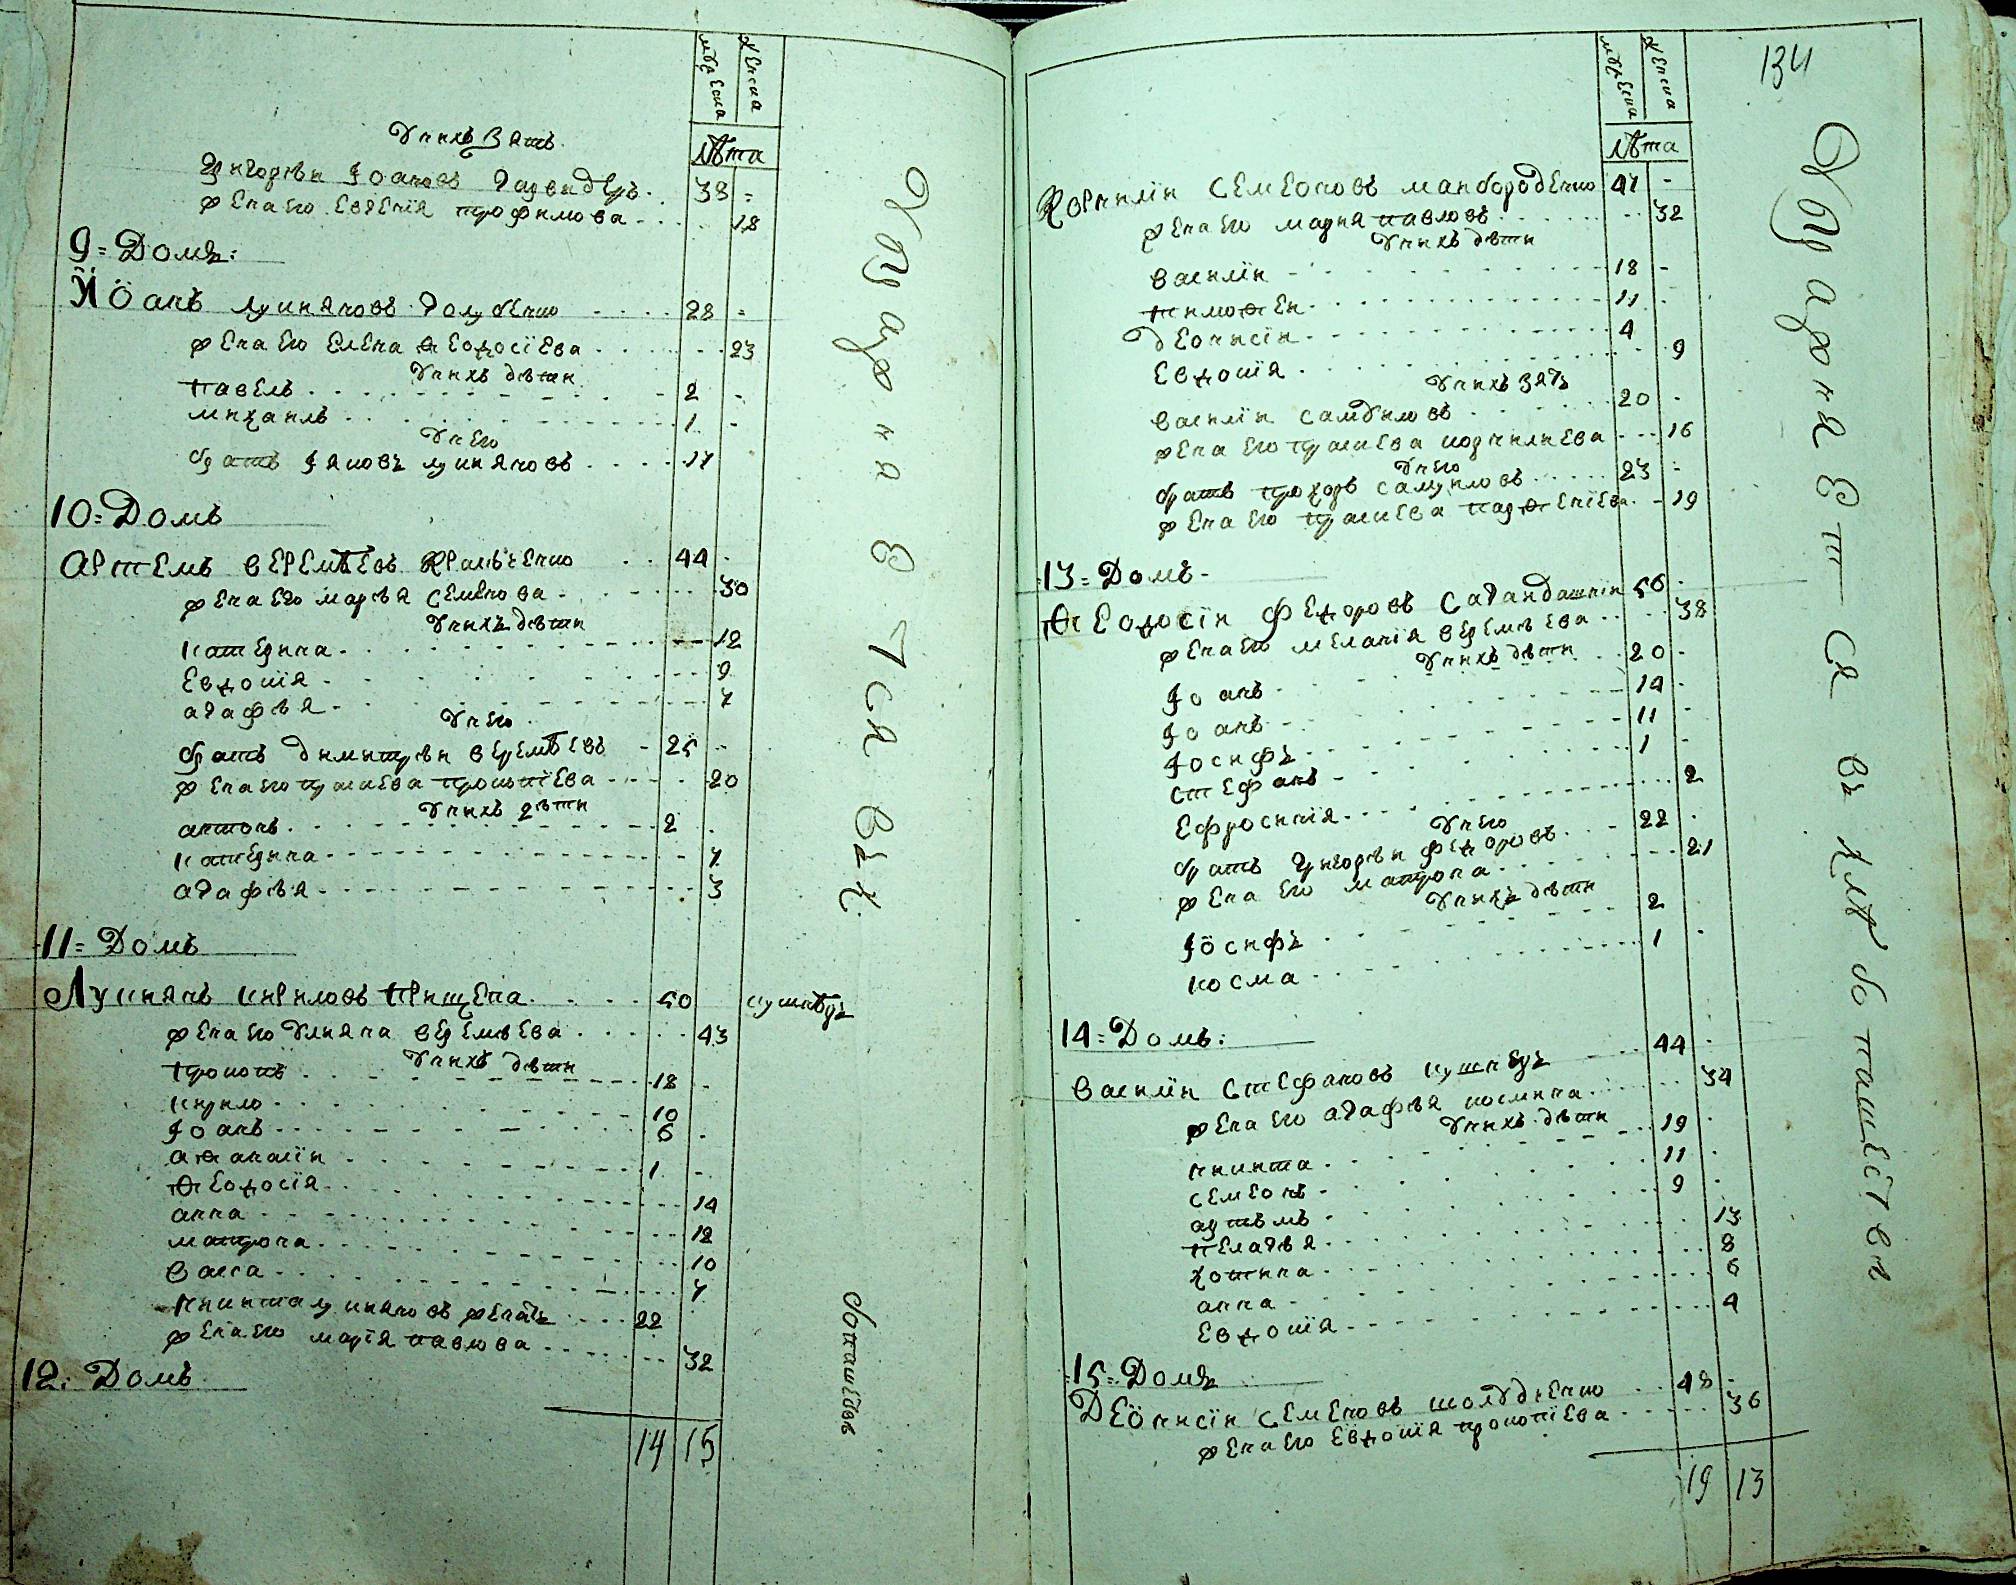 мужеска
женска
лѣта
У нихъ зять
Григорѣи Іоановъ Гарвидъръ 38 =
жена его Евгенія трофимова 18
9 = Домъ:
Йоанъ лукяновъ Голубенко 28 =
жена его Елена Ѳеодосіева 23
У нихъ дѣти
павелъ 2 -
михаилъ 1 -
У него
братъ Іяковъ лукяновъ 17
10 = Домъ
Артемъ веремѣевъ Кравченко 44 -
жена его марѣя семенова 30
У нихъ дѣти
катерина 12
Евдокія 9
агафѣя 7
У него
братъ димитрѣи веремѣевъ 25 -
жена его прасиева прокопіева 20
У нихъ дѣти
антонъ 2 -
катерина 7
агафѣя 3
11 = Домъ
Лукиянъ кириловъ Прищепа 50
жена его Уляна веремѣева 43
У нихъ дѣти
прокопъ 18 -
кирило 10
Іоанъ 6 -
аѳанасіи 1 -
Ѳеодосія 14
анна 12
матрона 10
васса 7
никита лукяновъ 22
жена его марія павлова 32
12: Домъ
14 15
Упражняется въ х
кушнѣръ
134
мужеска
женска
лѣта
Корниліи семеоновъ майбороденко 47 -
жена его мария павловъ 32
У нихъ дѣти
василіи 18 -
тимоѳеи 11 -
деонисіи 4
Евдокія 9
У нихъ зять
василіи самуиловъ 20 -
жена его прасиева корнилиева 16
У него
братъ прохоръ самуиловъ 23 -
жена его прасиева парѳеніева 19
13 = Домъ -
Ѳеодосіи федоровъ Сагайдашнін 56 -
жена его меланія веремѣева 38
У нихъ дѣти
Іоанъ 20 -
Іоанъ 14 -
Іосифъ 11 -
стефанъ 1 -
Ефросинія 2
У него
братъ григорѣи федоровъ 22 -
жена его матрона 21
У нихъ дѣти
Іосифъ 2
косма 1 -
14 = Домъ:
Василіи Стефановъ кушнѣръ 44 -
жена его агафѣя космина 34
У нихъ дѣти
никита 19 -
семеонъ 11 -
артѣмъ 9 -
пелагѣя 13
хотина 8
анна 6
Евдокія 4
15 = Домъ
Деонисіи семеновъ шолудченко 48 -
жена его Евдокія прокопіева 36
19 13
Упражняется въ хлѣбопашествѣ